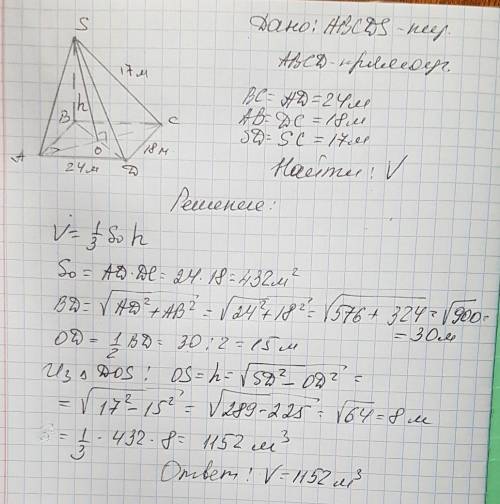 S
17м
h
B
C
A
O
D
24м
18м
Дано: ABCDS - пир.
ABCD - прямоуг.
BC = AD = 24м
AB = DC = 18м
SD = SC = 17м
Найти: V
Решение:
V = 1/3 So h
So = AD·DC = 24·18 = 432м²
BD = √AD² + AB² = √24² + 18² = √576 + 324 = √900 =
= 30м
OD = 1/2 BD = 30 : 2 = 15 м
Из △DOS: OS = h = √SD² - OD² =
= √17² - 15² = √289 - 225 = √64 = 8 м
= 1/3 · 432 · 8 = 1152 м³
Ответ: V = 1152 м³